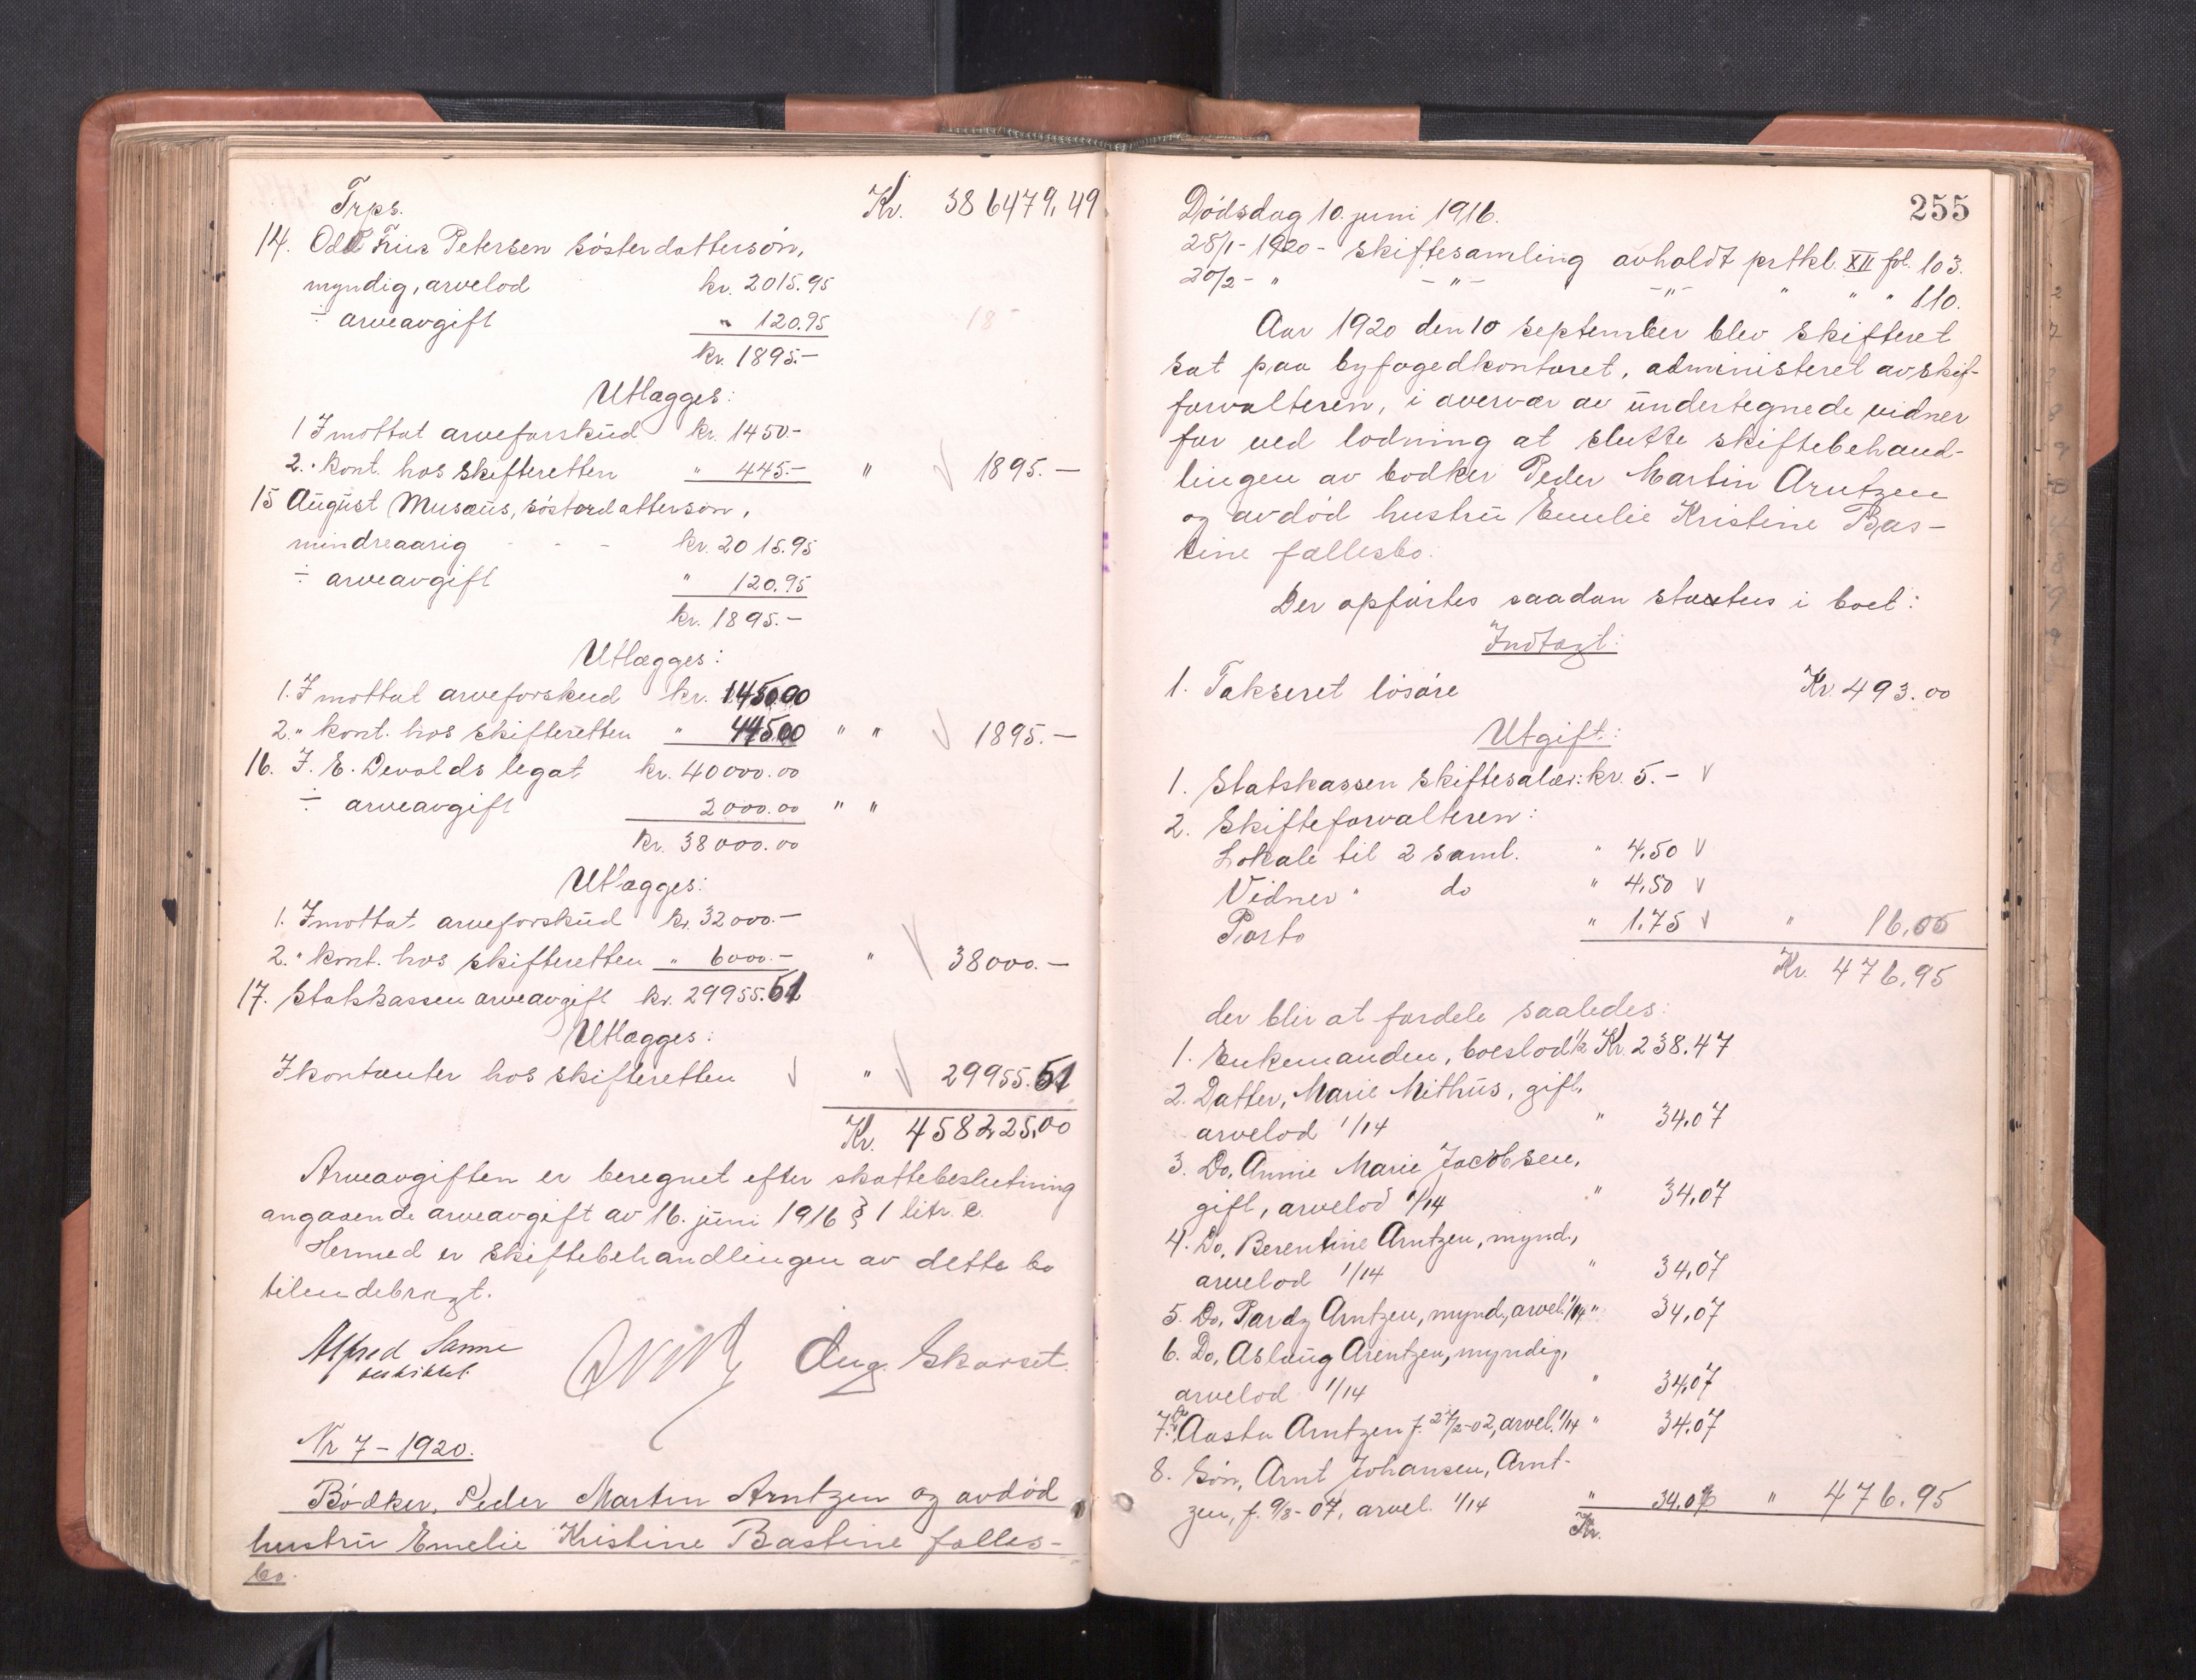 Trps. Kr. 386479,49
14. Odd Friis Petersen søsterdattersøn,
myndig, arvelod kr. 2015.95
÷ arveavgift " 120.95
kr. 1895.-
Utlægges:
1 I mottat arveforskud kr. 1450.-
2. " kont. hos skifteretten " 445.- " 1895.-
15 August Musæus, søsterdattersøn,
mindreaarig - - - kr. 2015.95
÷ arveavgift " 120.95
kr. 1895.-
Utlægges:
1. I mottat arveforskud kr. 1450.00
2. " kont. hos skifteretten " 445.00 " " 1895.-
16. I. E. Devolds legat kr. 40000.00
÷ arveavgift 2000.00 " "
kr. 38000.00
Utlægges:
1. I mottat arveforskud kr. 32000.-
2. " kont. hos skifteretten " 6000.- " 38000.-
17. Statskassen arveavgift kr. 29955.51
Utlægges:
I kontanter hos skifteretten " 29955.51
Kr. 458225,00
Arveavgiften er beregnet efter skattebeslutning
angaaende arveavgift av 16. juni 1916 § 1 litr. c.
Hermed er skiftebehandlingen av dette bo
tilendebragt.
Alfred Sanne
beskikket. Aug. Skarset.
Nr 7 - 1920.
Bødker, Peder Martin Arntzen og avdød
hustru Emelie Kristine Bastine fælles-
bo.
255
Dødsdag 10. juni 1916.
28/1 - 1920 - skiftesamling avholdt prtkl. XII fol. 103.
20/2 - " - " - - " - " " " 110.
Aar 1920 den 10 september blev skifteret
sat paa byfogedkontoret, administeret av skif-
forvalteren, i overvær av undertegnede vidner
for ved lodning at slutte skiftebehand-
lingen av bødker Peder Martin Arntzen
og avdød hustru Emelie Kristine Bas-
tine fællesbo.
Der opførtes saadan status i boet:
Indtægt:
1. Takseret løsøre Kr. 493.00
Utgift:
1. Statskassen skiftesalær: kr. 5.-
2. Skifteforvalteren:
Lokale til 2 saml. " 4,50
Vidner " do " 4,50
Porto " 1.75 " 16,05
Kr. 476.95
der blir at fordele saaledes:
1. Enkemanden, boeslod 1/2 Kr. 238.47
2. Datter, Marie Mithus, gift,
arvelod 1/14 " 34.07
3. Do, Annie Marie Jacobsen,
gift, arvelod 1/14 " 34,07
4. Do, Berentine Arntzen, mynd.,
arvelod 1/14 " 34,07
5. Do, Pardy Arntzen, mynd., arvel. 1/14 " 34,07
6. Do, Aslaug Arentzen, myndig,
arvelod 1/14 " 34,07
7. Do Aasta Arntzen f. 27/2-02, arvel. 1/14 " 34.07
8. Søn, Arnt Johansen, Arnt-
zen, f. 9/8-07, arvel. 1/14 " 34.06 " 476.95
Kr.